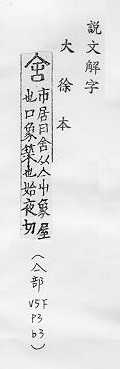 説文解字
大徐本
市居曰舍从亼屮象屋
也口象築也始夜切
(亼部
V5F
P3
b3)